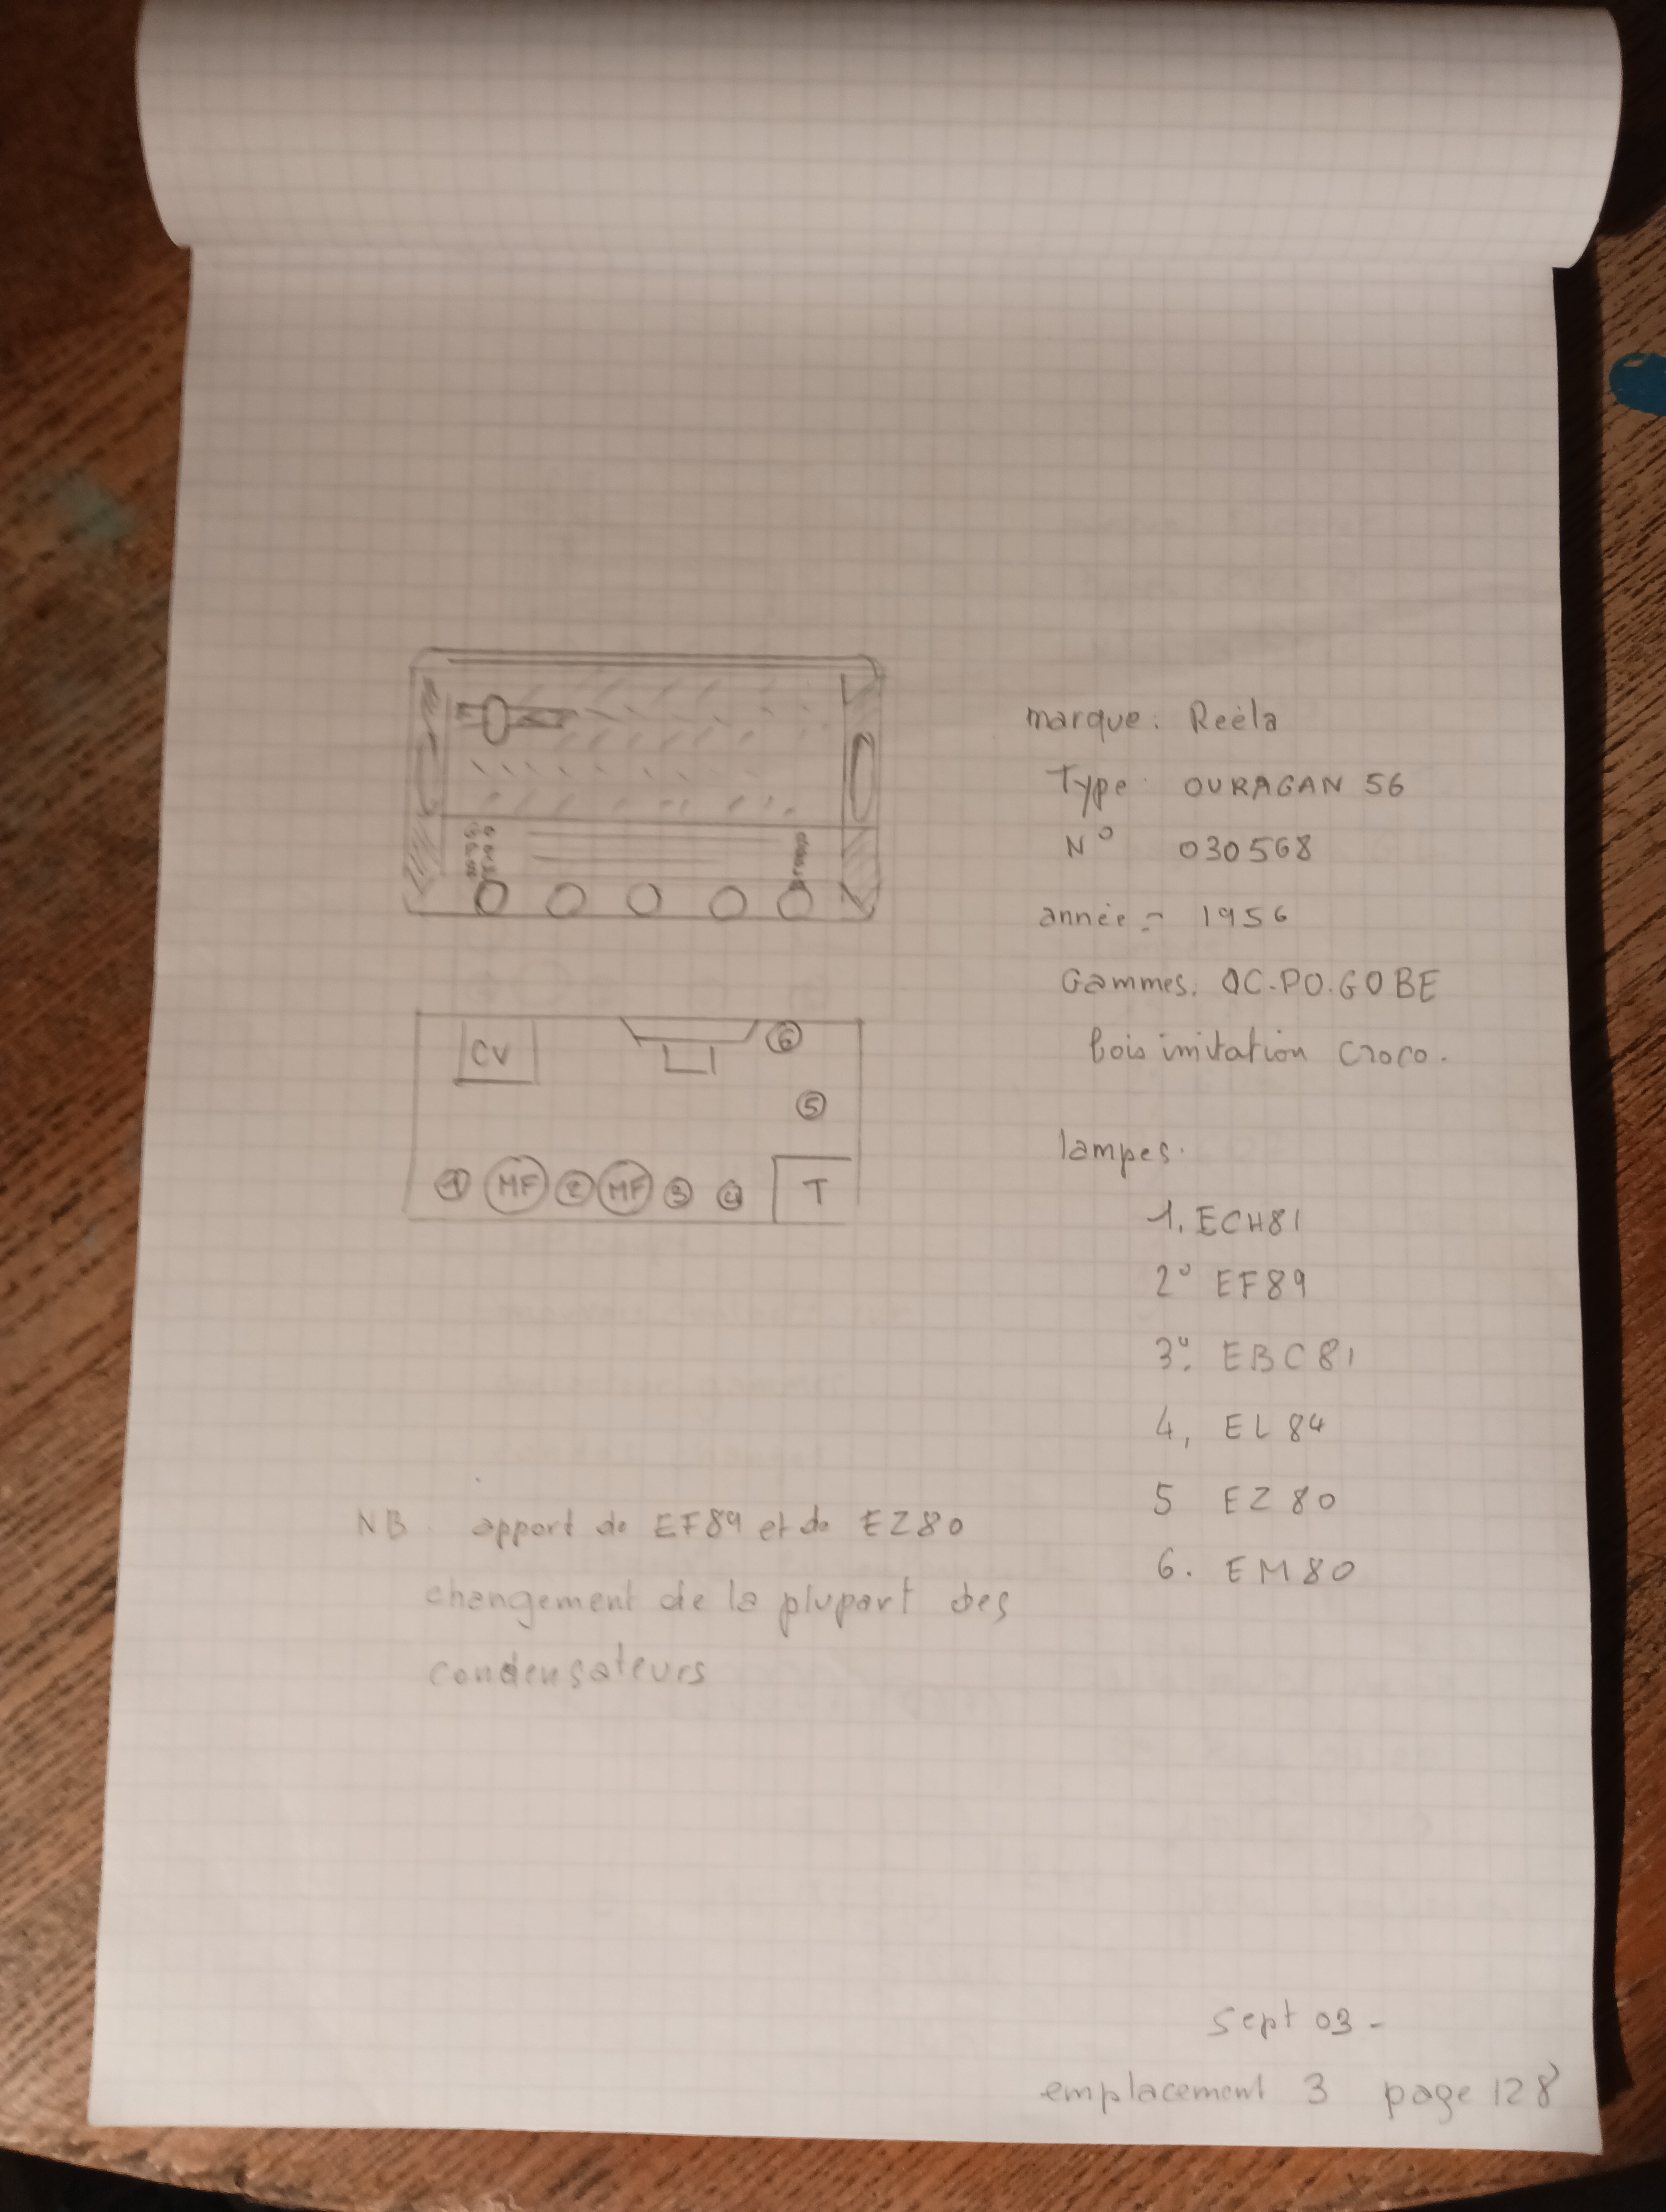 marque: Reéla
Type OURAGAN 56
N° 030568
année = 1956
Gammes. OC.PO.GO BE
bois imitation croco.
CV
6
5
1 MF 2 MF 3 4 T
lampes.
1. ECH81
2° EF89
3°. EBC81
4, EL84
5 EZ80
6. EM80
NB apport de EF89 et de EZ80
changement de la plupart des
condensateurs
sept 03 -
emplacement 3 page 128